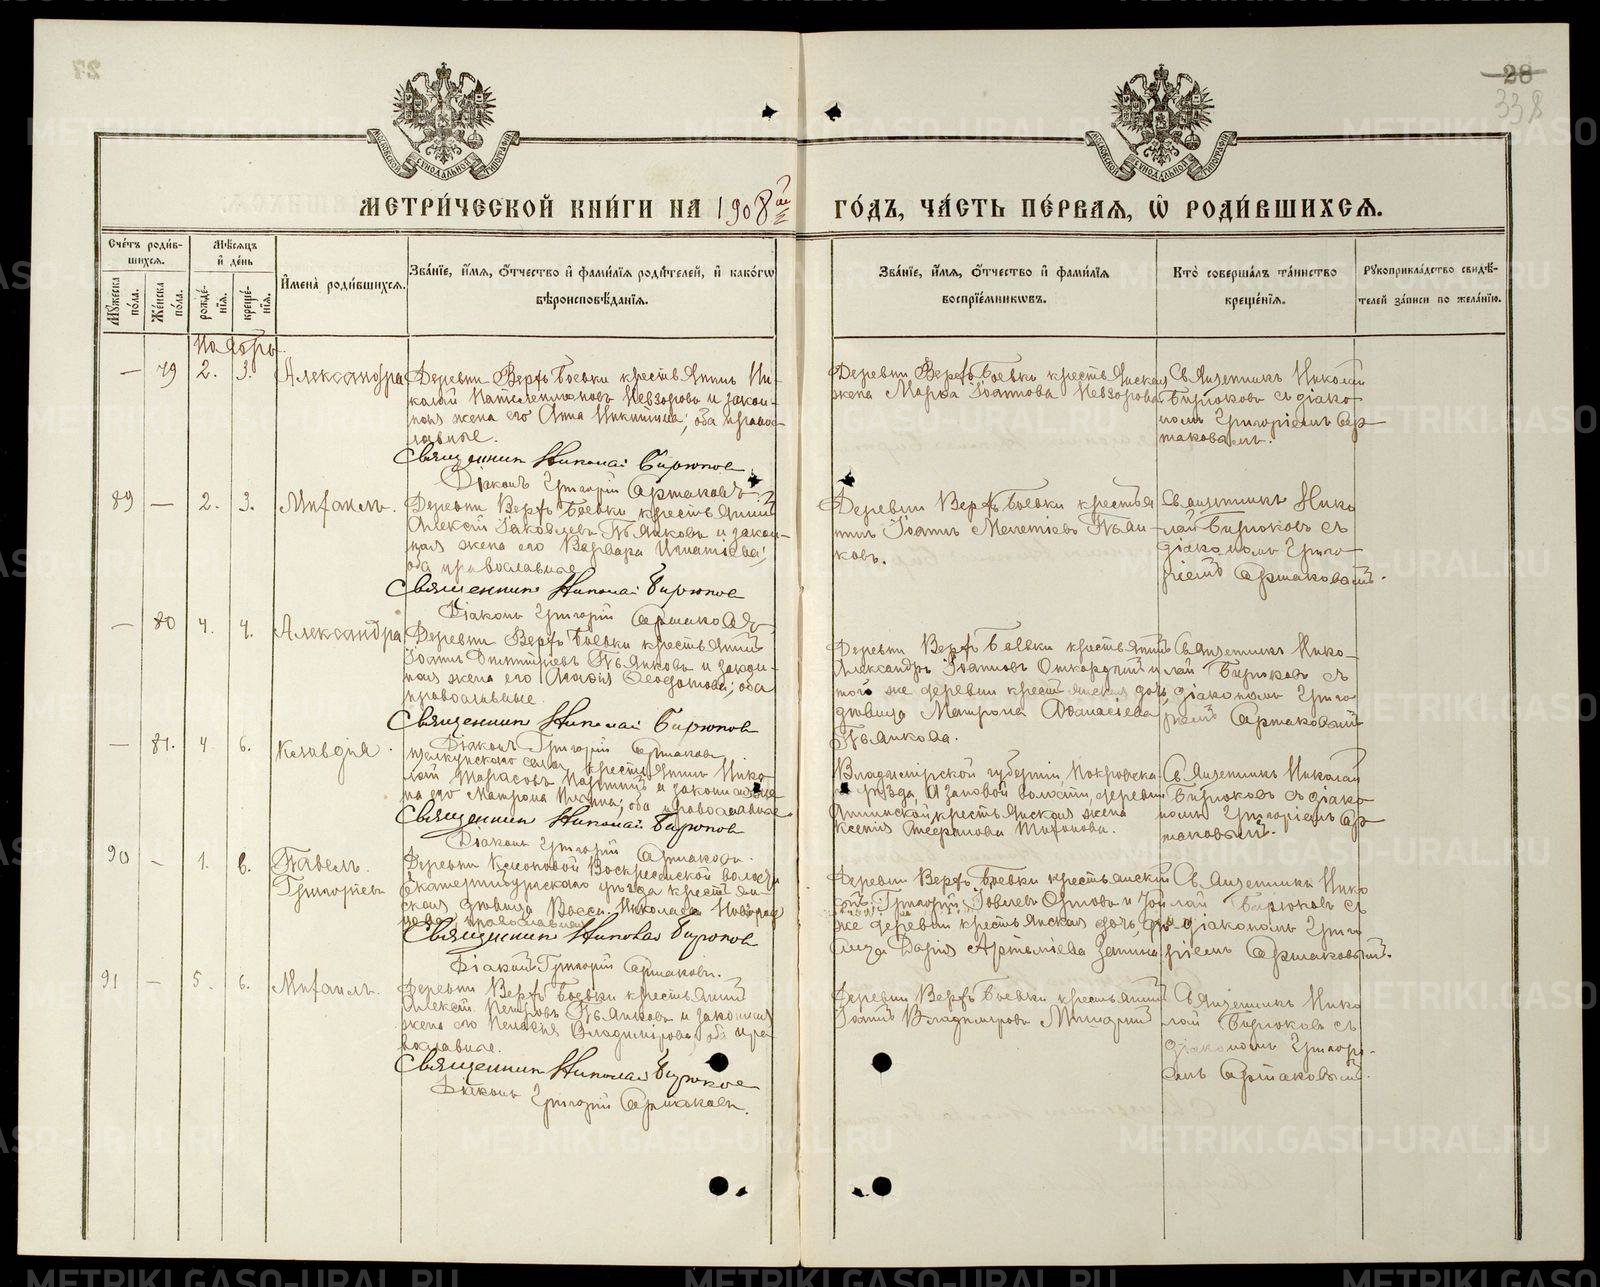 28
338
МЕТРИ́ЧЕСКОЙ КНИ́ГИ НА 1908й
ГО́ДЪ, ЧА́СТЬ ПЕ́РВАЯ, Ѡ҆ РОДИ́ВШИХСЯ.
Сче́тъ роди́в-
шихся.
Мѣ́сяцъ
и҆ де́нь
Мꙋ́жеска по́ла.
Же́нска по́ла.
рожде́-
нїя.
креще́-
нїя.
И҆мена̀ роди́вшихся.
Зва́нїе, и҆́мя, ѻ҆́тчество и҆ фами́лїя роди́телей, и҆ како́гѡ
вѣроисповѣ́данїя.
Зва́нїе, и҆́мя, ѻ҆́тчество и҆ фами́лїя
воспрїе́мникѡвъ.
Кто̀ соверша́лъ та́инство
креще́нїя.
Рꙋкоприкла́дство свидѣ́-
телей за́писи по жела́нїю.
Ноябрь.
— 79 2. 3. Александра
Деревни Верхъ Боевки крестьянинъ Ни-
колай Невзоровъ и закон-
ная жена его Анна Никитина; оба правос-
лавные.
Священник Николай Бирюков
Діаконъ Григорій Артаковъ
Деревни Верхъ Боевки крестьянская
жена Марѳа Іоаннова Невзорова
Священникъ Николай
Бирюковъ съ діако-
номъ Григоріемъ Ар-
таковымъ.
89 — 2. 3. Михаилъ.
Деревни Верхъ Боевки крестьянинъ
Алексій Іаковлевъ Пьянковъ и закон-
ная жена его Варвара Игнатіева;
оба православные
Священник Николай Бирюков
Діаконъ Григорій Артаковъ
Деревни Верхъ Боевки крестья
нинъ Іоаннъ Мелетіевъ Пьян
ковъ.
Священникъ Нико
лай Бирюковъ съ
діакономъ Григо-
ріемъ Артаковымъ.
— 80 4. 4. Александра
Деревни Верхъ Боевки крестьянинъ
Іоаннъ Димитріевъ Пьянковъ и закон-
ная жена его Ѳеодотова; оба
православные
Священник Николай Бирюков
Діаконъ Григорій Артаковъ
Деревни Верхъ Боевки крестьянинъ
Александръ Іоанновъ и
той же деревни крестьянская дочь,
дѣвица Матрона Аѳанасіева
Пьянкова.
Священникъ Нико-
лай Бирюковъ съ
діакономъ Григо
ріемъ Артаковымъ
— 81. 4 6. Клавдія.
села, крестьянинъ Нико
лай Тарасовъ и законная же
на его Матрона Ильина; оба православные.
Священник Николай Бирюков
Діаконъ Григорій Артаковъ.
Владимірской губерніи, Покровска
го уѣзда, волости, деревни
крестьянская жена
Ксенія Тихонова.
Священникъ Николай
Бирюковъ съ діако
номъ Григоріемъ Ар
таковымъ.
90 — 1. 6. Павелъ.
Григорьев
Деревни Клюковой Воскресенской волости
Екатеринбургскаго уѣзда крестьян-
ская дѣвица Васса Николаева
православная
Священник Николай Бирюков
Діаконъ Григорій Артаковъ.
Деревни Верхъ Боевки крестьянскій
сынъ Григорій Іовлевъ и той
же деревни крестьянская дочь, дѣ-
вица Дарія Артеміева
Священникъ Нико
лай Бирюковъ съ
діакономъ Григо
ріемъ Артаковымъ.
91 — 5. 6. Михаилъ.
Деревни Верхъ Боевки крестьянинъ
Алексѣй Петровъ Пьянковъ и законная
жена его Пелагія Владимірова; оба пра
вославные.
Священник Николай Бирюков
Діаконъ Григорій Артаковъ.
Деревни Верхъ Боевки крестьянинъ
Іоаннъ Владиміровъ
Священникъ Нико
лай Бирюковъ съ
діакономъ Григорі-
емъ Артаковымъ.
METRIKI.GASO-URAL.RU